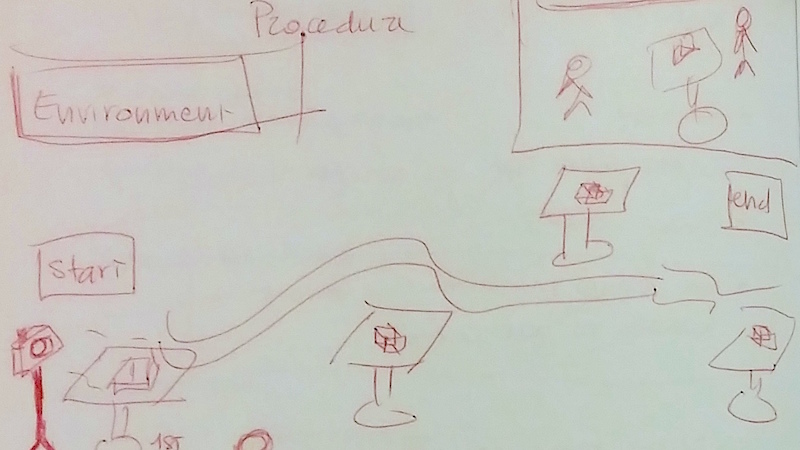 Procedure
Environment
end
Start
1ST